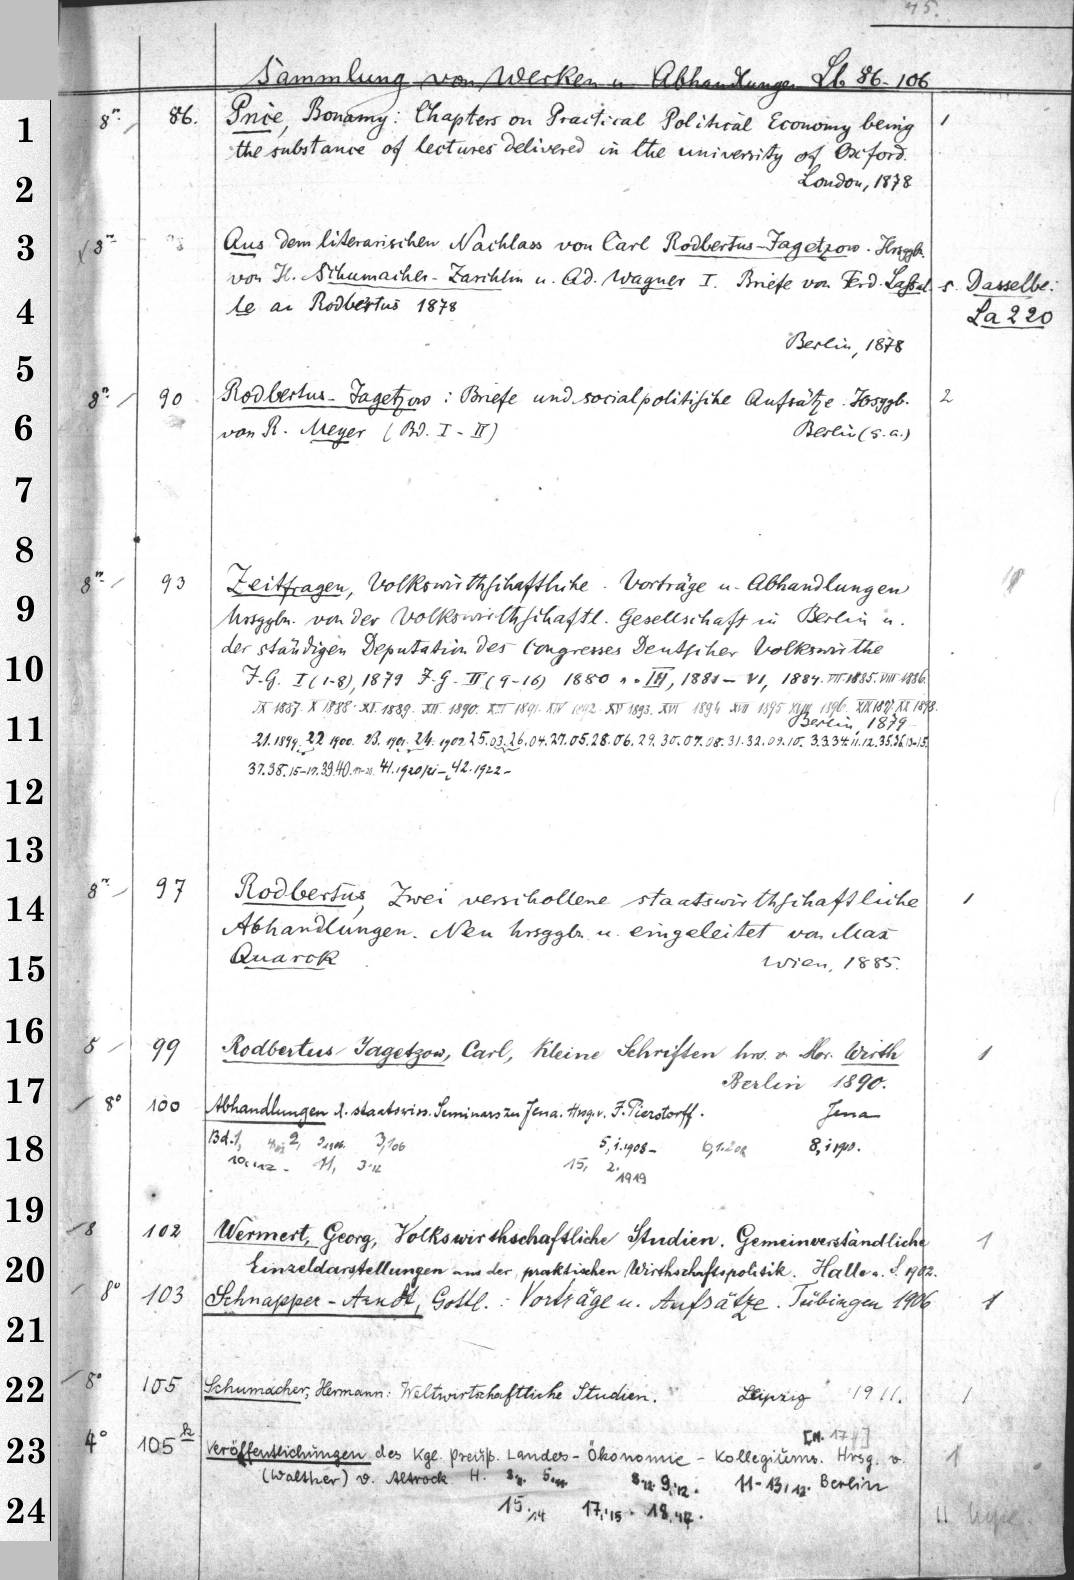 Sammlung von Werken u. Abhandlungen Lb 86-106
1 8° 86. Price, Bonamy: Chapters on Practical Political Economy being 1
the substance of lectures delivered in the university of Oxford.
2 London, 1878
3 8° Aus dem literarischen Nachlass von Carl Rodbertus-Jagetzow. Hrsggb.
von H. Schumacher-Zarchlin u. Ad. Wagner I. Briefe von Ferd. Lassal- s. Dasselbe:
4 le an Rodbertus 1878 La 220
5 Berlin, 1878
8° 90 Rodbertus-Jagetzow: Briefe und socialpolitische Aufsätze. Hrsggb. 2
6 von R. Meyer (Bd. I-II) Berlin (s.a.)
7
8
8° 93 Zeitfragen, Volkswirthschaftliche. Vorträge u. Abhandlungen
9 hrsggbn. von der Volkswirthschaftl. Gesellschaft in Berlin u.
10 der ständigen Deputation des Congresses Deutscher Volkswirthe
J.G. I (1-8), 1879 J.G. II (9-16) 1880 III, 1881 - VI, 1884. VII 1885. VIII 1886.
IX 1887. X 1888. XI 1889. XII 1890. XIII 1891. XIV 1892. XV 1893. XVI 1894 XVII 1895 XVIII 1896 XIX 1897 XX 1898.
11 Berlin, 1879
21. 1899. 22 1900. 23. 1901. 24. 1902. 25. 03. 26. 04. 27. 05. 28. 06. 29. 30. 07. 08. 31. 32. 09. 10. 33. 34. 11. 12. 35. 36. 13-15.
12 37. 38. 15-17. 39. 40. 41. 1920/21-, 42. 1922-
13
14 8° 97 Rodbertus, Zwei verschollene staatswirthschaftliche 1
Abhandlungen. Neu hrsggb. u. eingeleitet von Max
15 Quarck Wien, 1885.
16 8 99 Rodbertus Jagetzow, Carl, Kleine Schriften hrs. v. Mor. Wirth 1
17 Berlin 1890.
8° 100 Abhandlungen d. staatswiss. Seminars zu Jena. Hrsg. v. J. Pierstorff. Jena
18 Bd. 1, 2, 3, 5, 1. 1908- 6, 1. 208 8, 1 1910.
10, 12- 11, 3. 12 15, 2. 1919
19
8 102 Wermert, Georg, Volkswirthschaftliche Studien. Gemeinverständliche 1
20 Einzeldarstellungen aus der praktischen Wirthschaftspolitik. Halle a. S. 1902.
8° 103 Schnapper-Arndt, Gottl.: Vorträge u. Aufsätze. Tübingen 1906 1
21
22 8° 105 Schumacher, Hermann: Weltwirtschaftliche Studien. Leipzig 1911. 1
23 4° 105 a Veröffentlichungen des Kgl. Preuß. Landes-Ökonomie-Kollegiums. Hrsg. v. 1
(Walther) v. Altrock H. 11-13, 12. Berlin
24 15. 14 17, 15. 18.